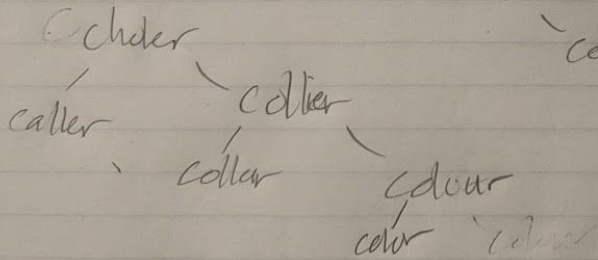 choler
caller
collier
collar
colour
color